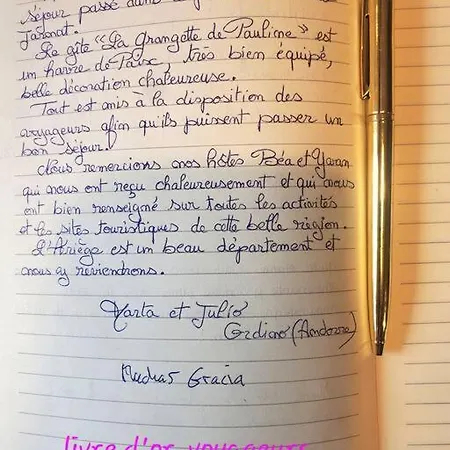 séjour passé dans
Le gîte « La Grangette de Pauline » est
un havre de Paix, très bien équipé,
belle décoration chaleureuse.
Tout est mis à la disposition des
voyageurs afin qu'ils puissent passer un
bon séjour.
Nous remercions nos hôtes Béa et Yovan
qui nous ont reçu chaleureusement et qui nous
ont bien renseigné sur toutes les activités
et les sites touristiques de cette belle région.
L'Ariège est un beau département et
nous y reviendrons.
Marta et Julio
Ordino (Andorre)
Muchas Gracia
livre d'or voyageurs